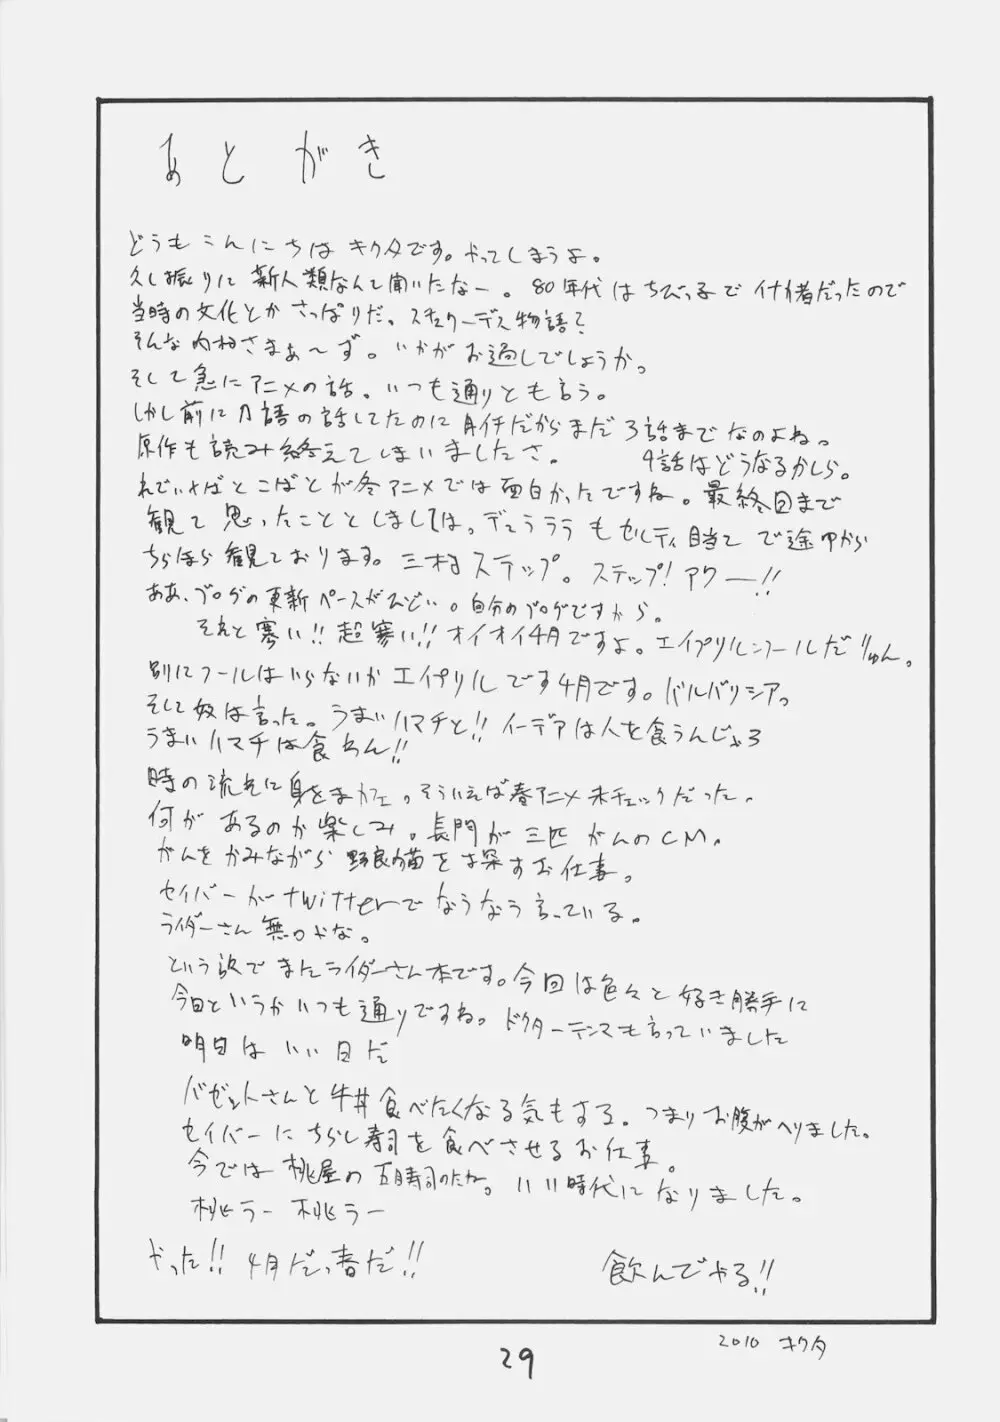 あとがき
どうもこんにちはキクタです。やってしまうよ。
久し振りに新人類なんて聞いたなー。80年代はちびっ子で
だったので
当時の文化とかさっぱりだ。スチュワーデス物語?
そんな内村さまぁ～ず。いかがお過しでしょうか。
そして急にアニメの話。いつも通りとも言う。
しかし前に刀語の話してたのに月イチだからまだ3話までなのよね。
原作も読み終えてしまいましたさ。 4話はどうなるかしら。
れでぃ×ばとこばとが冬アニメでは面白かったですね。最終回まで
観て思ったこととしましては。デュラララもセルティ目当てで途中から
ちらほら観ております。三村ステップ。ステップ!アウー!!
ああ、ブログの更新ペースがひどい。自分のブログですから。
それと寒い!!超寒い!!オイオイ4月ですよ。エイプリルフールだ
別にフールはいらないがエイプリルです4月です。バルバリシアっ
そして奴は言った。うまいハマチと!!イーデアは人を食うんじゃろ
うまいハマチは食わん!!
時の流れに身をまカフェ。そういえば春アニメ未チェックだった。
何があるのか楽しみ。長門が三匹がんのCM。
がんをかみながら野良猫を探すお仕事。
セイバーがtwitterでなうなう言っている。
ライダーさん無口やな。
という訳でまたライダーさん本です。今回は色々と好き勝手に
今回というかいつも通りですね。ドクターテンマも言っていました
明日はいい日だ
バゼットさんと牛丼食べたくなる気もする。つまりお腹がへりました。
セイバーにちらし寿司を食べさせるお仕事。
今では桃屋の五目寿司のたね。いい時代になりました。
桃ラー 桃ラー
やった!!4月だっ春だ!! 飲んでやる!!
2010 キクタ
29